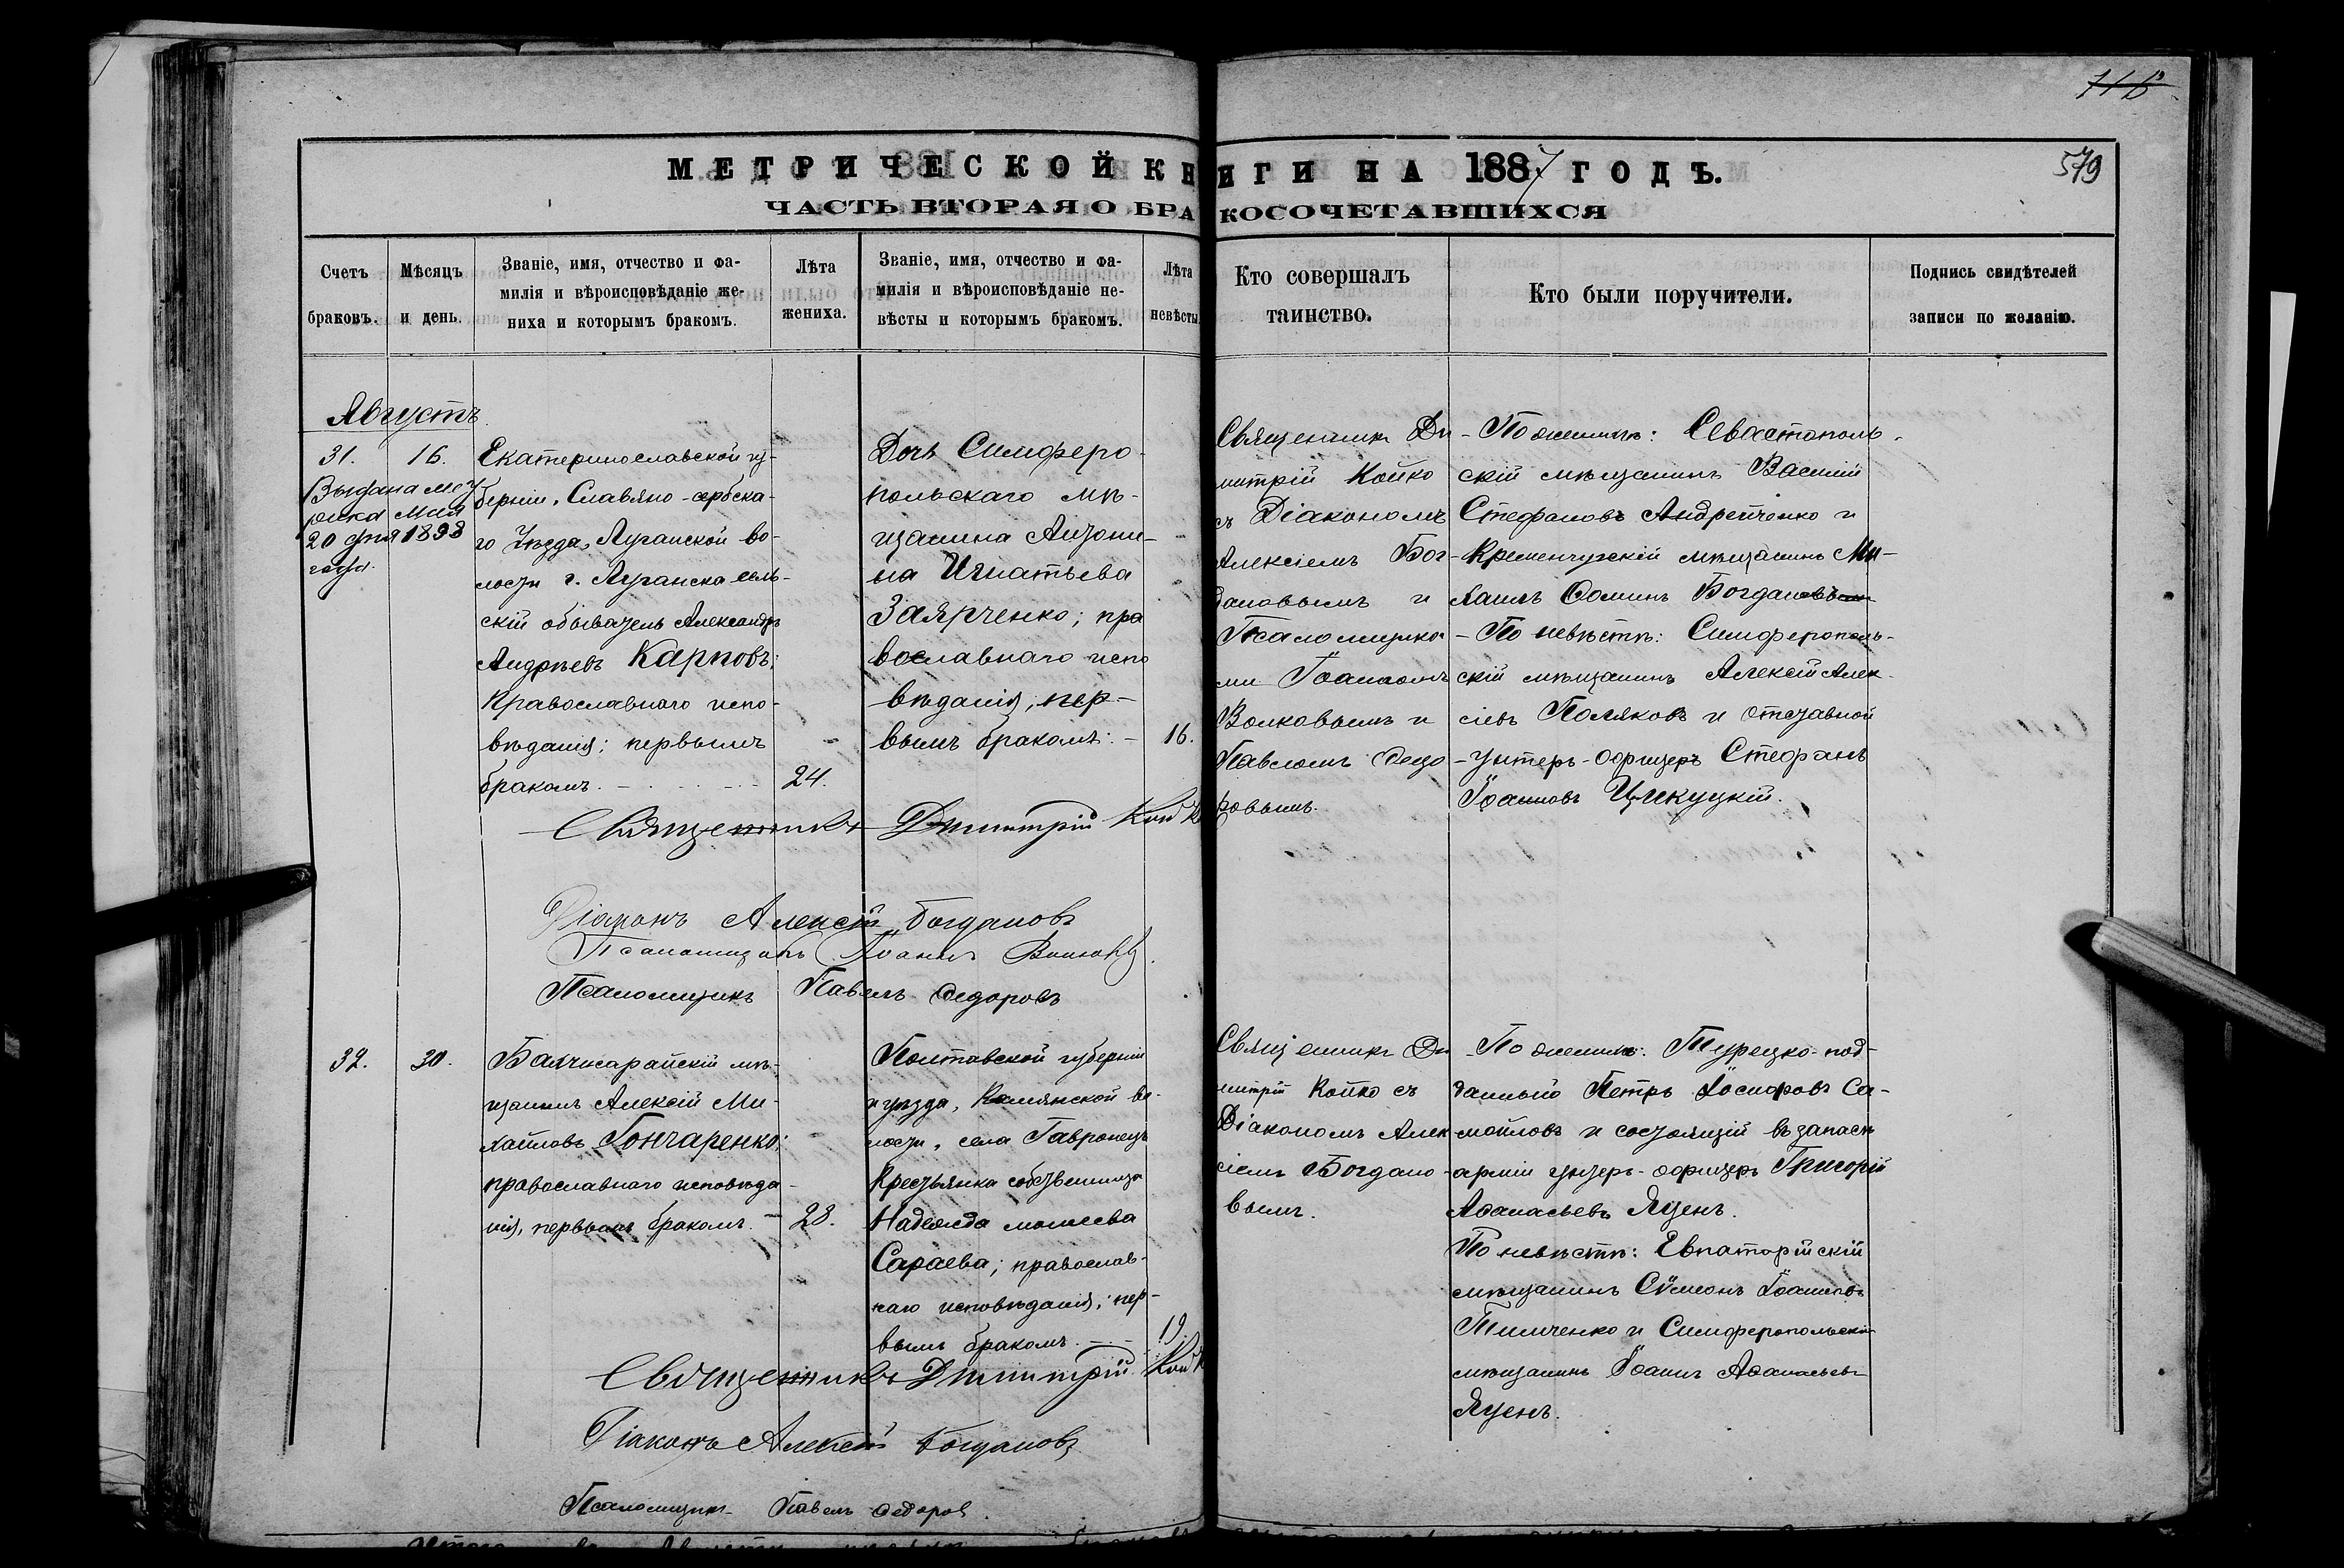 579
МЕТРИЧЕСКОЙ КНИГИ НА 1887 ГОДЪ.
ЧАСТЬ ВТОРАЯ О БРАКОСОЧЕТАВШИХСЯ
Счетъ
браковъ.
Мѣсяцъ
и день.
Званіе, имя, отчество и фа-
милія и вѣроисповѣданіе же-
ниха и которымъ бракомъ.
Лѣта
жениха.
Званіе, имя, отчество и фа-
милія и вѣроисповѣданіе не-
вѣсты и которымъ бракомъ.
Лѣта
невѣсты.
Кто совершалъ
таинство.
Кто были поручители.
Подпись свидѣтелей
записи по желанію.
Августъ
31.
16.
Выдана мет
рика Мая
20 дня 1898
года.
Екатеринославской гу-
берніи, Славяно-сербска-
го Уѣзда, Луганской во-
лости г. Луганска сель-
скій обыватель Александръ
Андреевъ Карповъ;
Православнаго испо-
вѣданія; первымъ
бракомъ.
24.
Дочь Симферо-
польскаго мѣ-
щанина Антони-
на Игнатьева
Заярченко; пра
вославнаго испо
вѣданія, пер-
вымъ бракомъ.
16.
Священникъ Ди-
митрій Койко
съ Діакономъ
Алексіемъ Бог-
дановымъ и
Псаломщика-
ми Іоанномъ
Волковымъ и
Павломъ Федо-
ровымъ.
По женихѣ: Севастополь-
скій мѣщанинъ Василій
Стефановъ Андрейченко и
Кременчугскій мѣщанинъ Ми-
хаилъ Фоминъ Богдановъ
По невѣстѣ: Симферополь-
скій мѣщанинъ Алексій Алек-
сіевъ Поляковъ и отставной
унтеръ-офицеръ Стефанъ
Іоанновъ
Священникъ Димитрій Койко
Діаконъ Алексій Богдановъ
Псаломщикъ Іоаннъ Волковъ.
Псаломщикъ Павелъ Федоровъ
32.
30.
Бахчисарайскій мѣ-
щанинъ Алексій Ми-
хайловъ Гончаренко;
православнаго исповѣда-
нія, первымъ бракомъ.
28.
Полтавской губерніи
и уѣзда, во-
лости, села Гавронецъ
Крестьянка собственница
Надежда моисеева
Сараева; православ-
наго исповѣданія; пер-
вымъ бракомъ
19.
Священникъ Ди
митрій Койко съ
Діакономъ Алек
сіемъ Богдано-
вымъ.
По женихѣ: Турецко-под-
данный Петръ Іосифовъ Са-
мойловъ и состоящій въ запасѣ
арміи унтеръ-офицеръ Григорій
Афанасьевъ Яценъ.
По невѣстѣ: Евпаторійскій
мѣщанинъ Сѵмеонъ Іоанновъ
Тимченко и Симферопольскій
мѣщанинъ Іоаннъ Афанасьевъ
Яценъ.
Священникъ Димитрій Койко
Діаконъ Алексій Богдановъ
Псаломщикъ Павелъ Федоровъ.